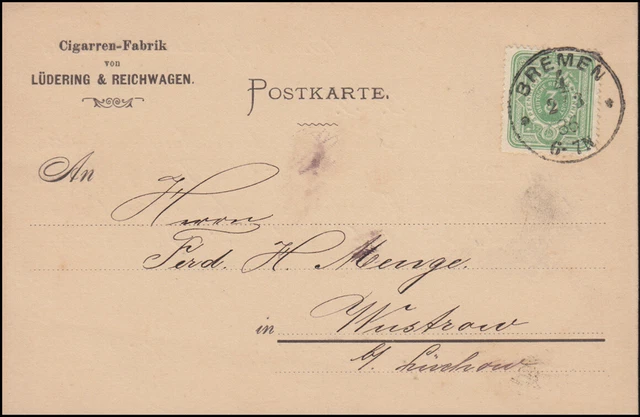 Cigarren-Fabrik
von
LÜDERING & REICHWAGEN.
POSTKARTE.
BREMEN
1
2 3
6-7N
An
Herrn
Ferd. H. Menge.
in Wustrow
b/ Lüchow